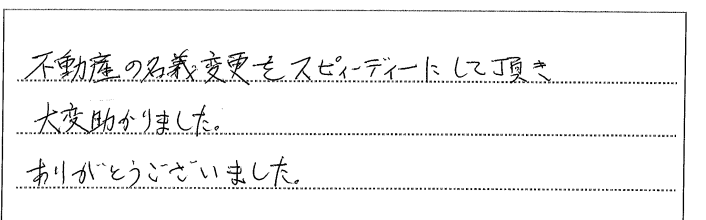 不動産の名義変更をスピィーディーにして頂き
大変助かりました。
ありがとうございました。